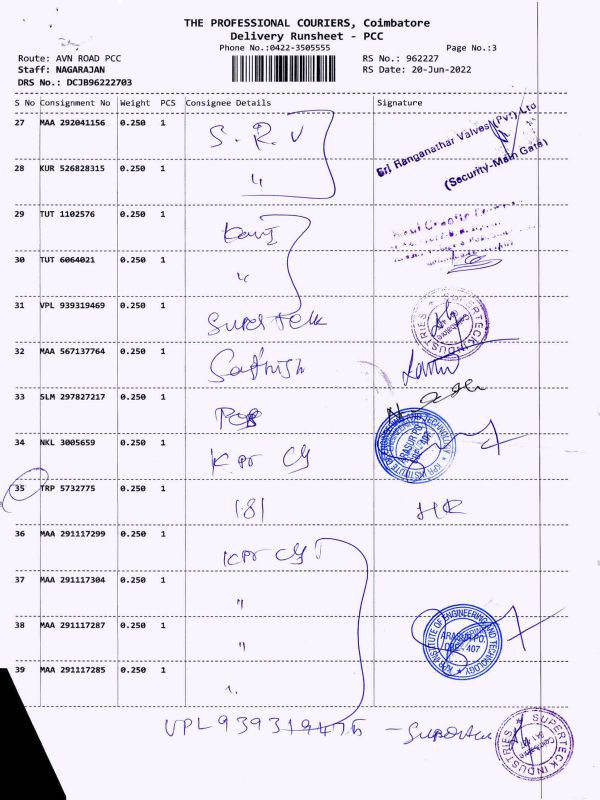 THE PROFESSIONAL COURIERS, Coimbatore
Delivery Runsheet - PCC
Phone No.:0422-3505555
Page No.:3
Route: AVN ROAD PCC
RS No.: 962227
Staff: NAGARAJAN
RS Date: 20-Jun-2022
DRS No.: DCJB96222703
S No Consignment No Weight PCS Consignee Details Signature
27 MAA 292041156 0.250 1 S. R. V
Sri Ranganathar Valves (Pvt) Ltd
(Security-Main Gate)
28 KUR 526828315 0.250 1 "
29 TUT 1102576 0.250 1
30 TUT 6064021 0.250 1 "
31 VPL 939319469 0.250 1
SUPERTECK INDUSTRIES
32 MAA 567137764 0.250 1 Sathish
33 SLM 297827217 0.250 1
34 NKL 3005659 0.250 1 Kpr
KPR INSTITUTE OF ENGINEERING AND TECHNOLOGY
ARASUR PO.
CBE - 407
35 TRP 5732775 0.250 1 181 HR
36 MAA 291117299 0.250 1 Kpr
37 MAA 291117304 0.250 1 "
38 MAA 291117287 0.250 1 "
KPR INSTITUTE OF ENGINEERING AND TECHNOLOGY
ARASUR PO.
CBE - 407
39 MAA 291117285 0.250 1 "
SUPERTECK INDUSTRIES